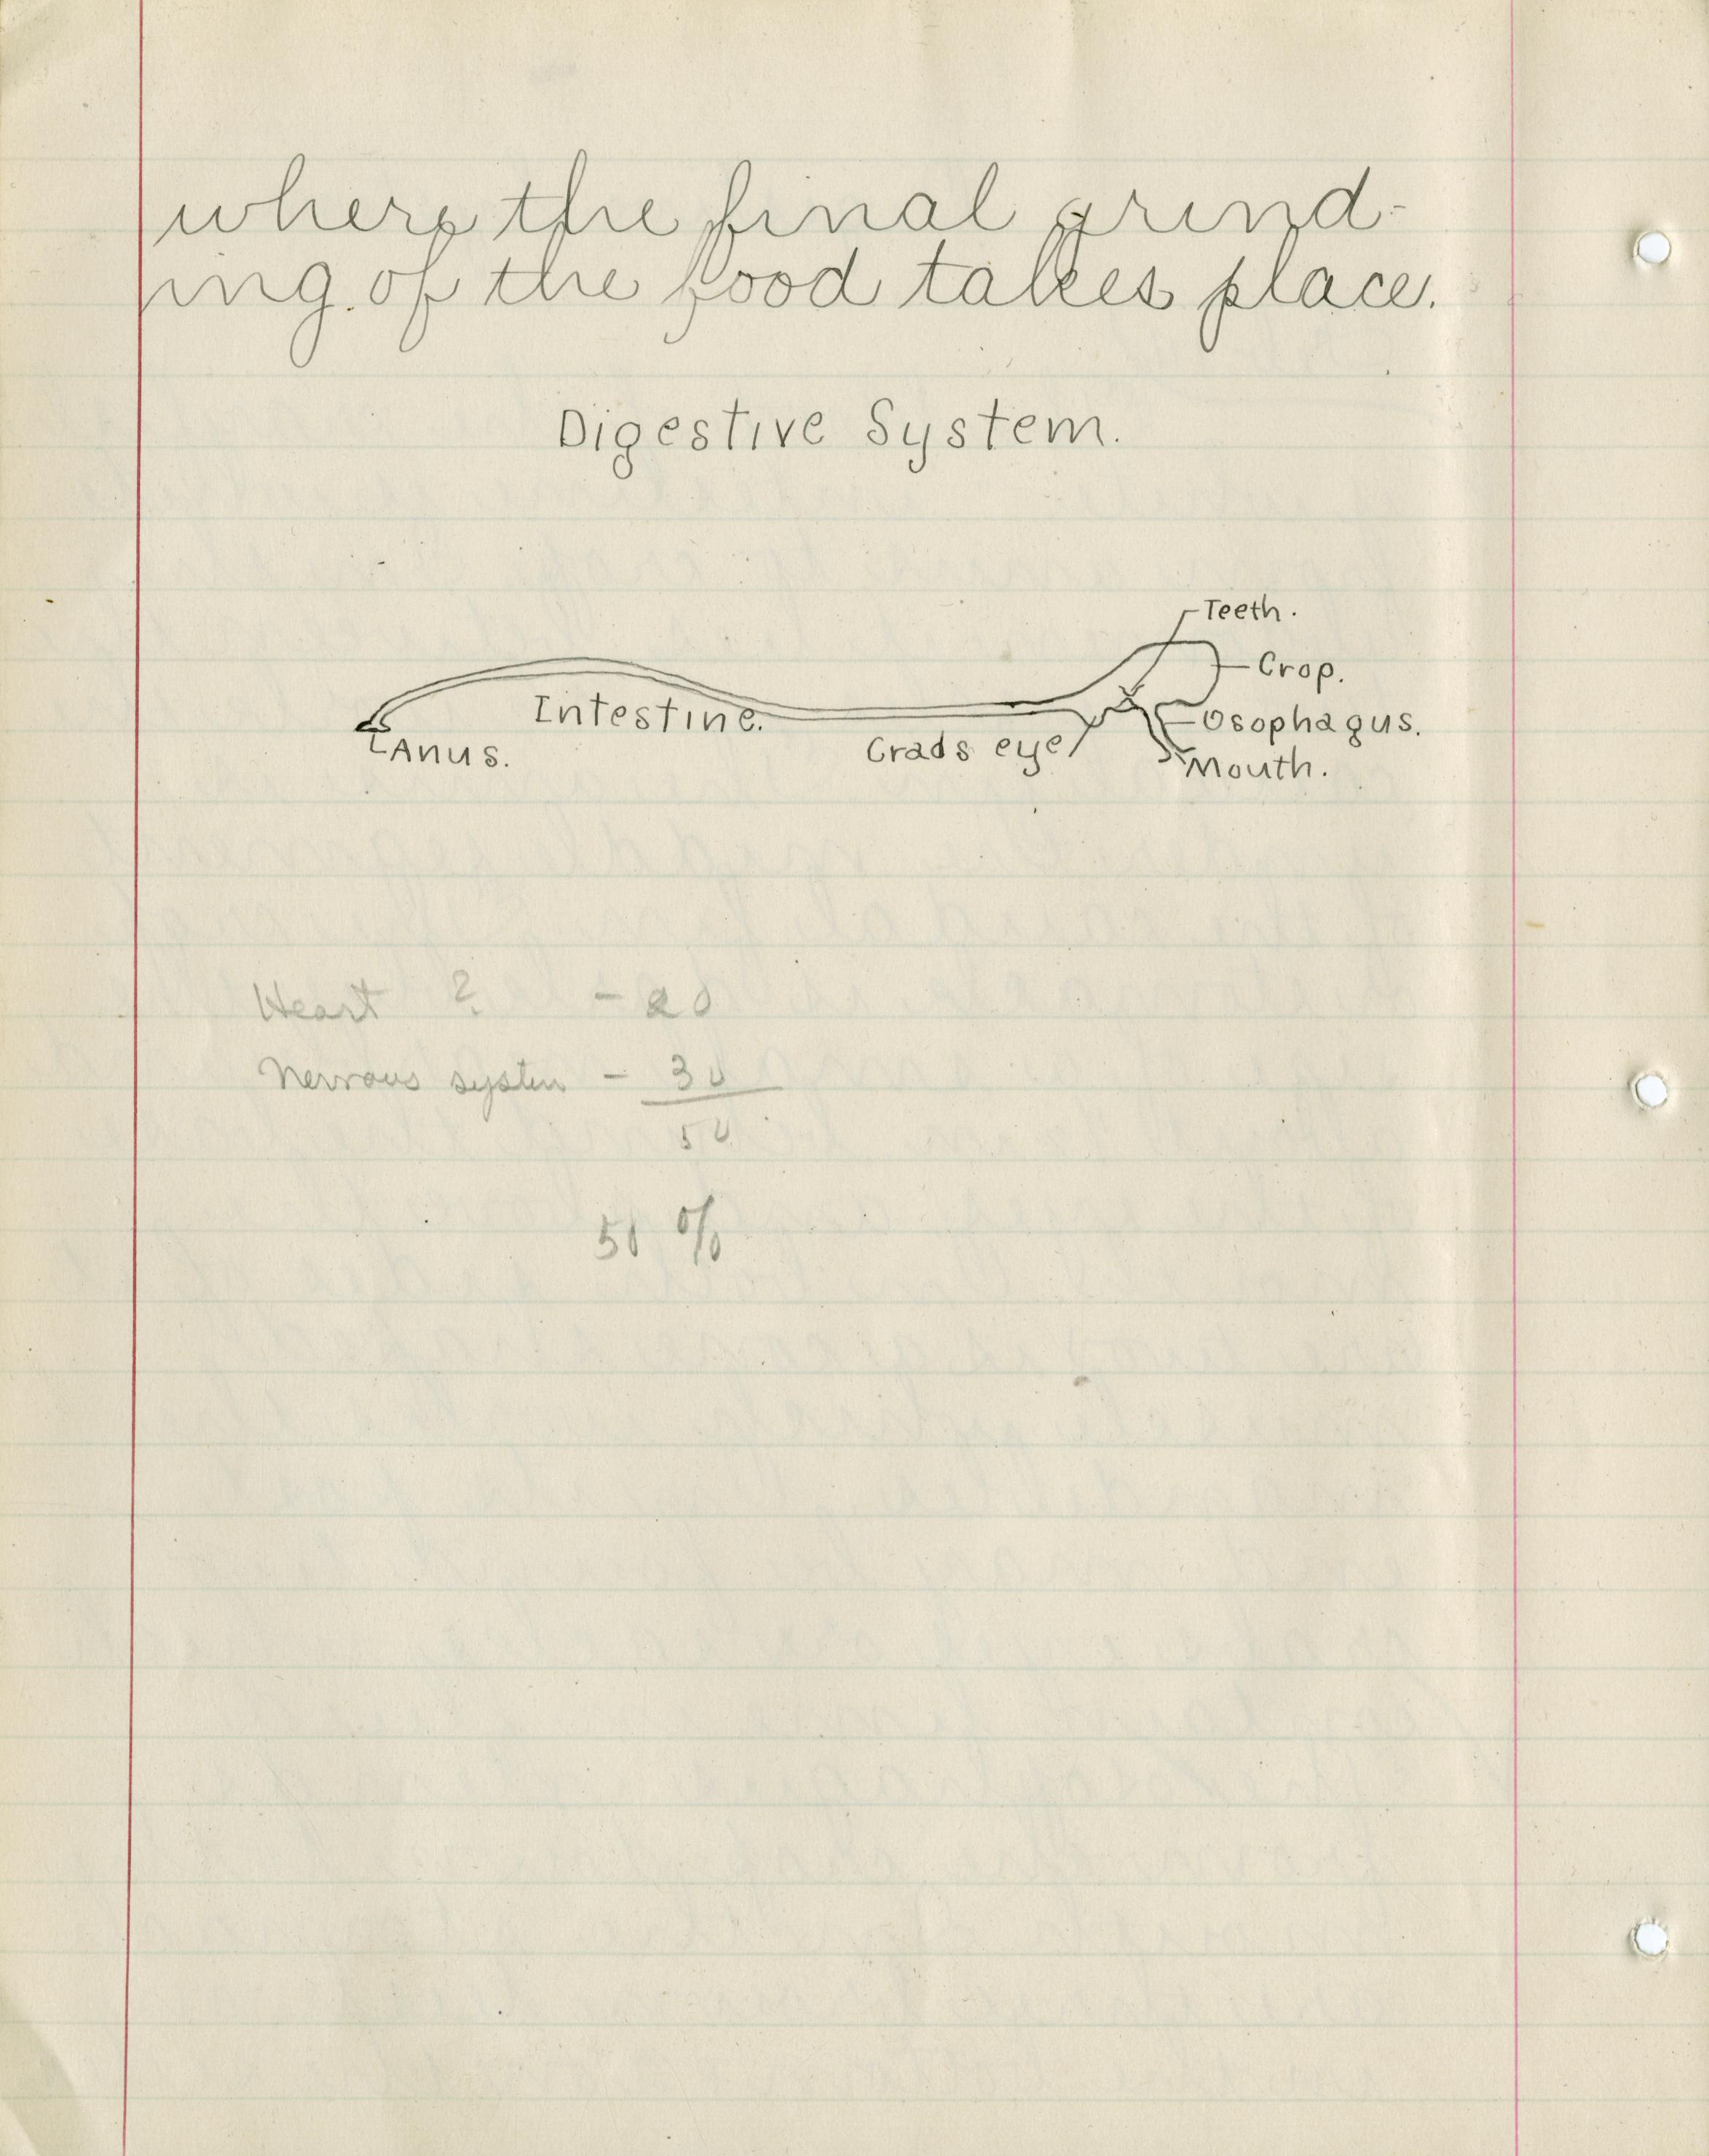 where the final grind-
ing of the food takes place.
Digestive System.
Teeth.
Crop.
Intestine.
Osophagus.
Anus.
Crads eye
Mouth.
Heart ? - 20
Nervous system - 30
50
50 %